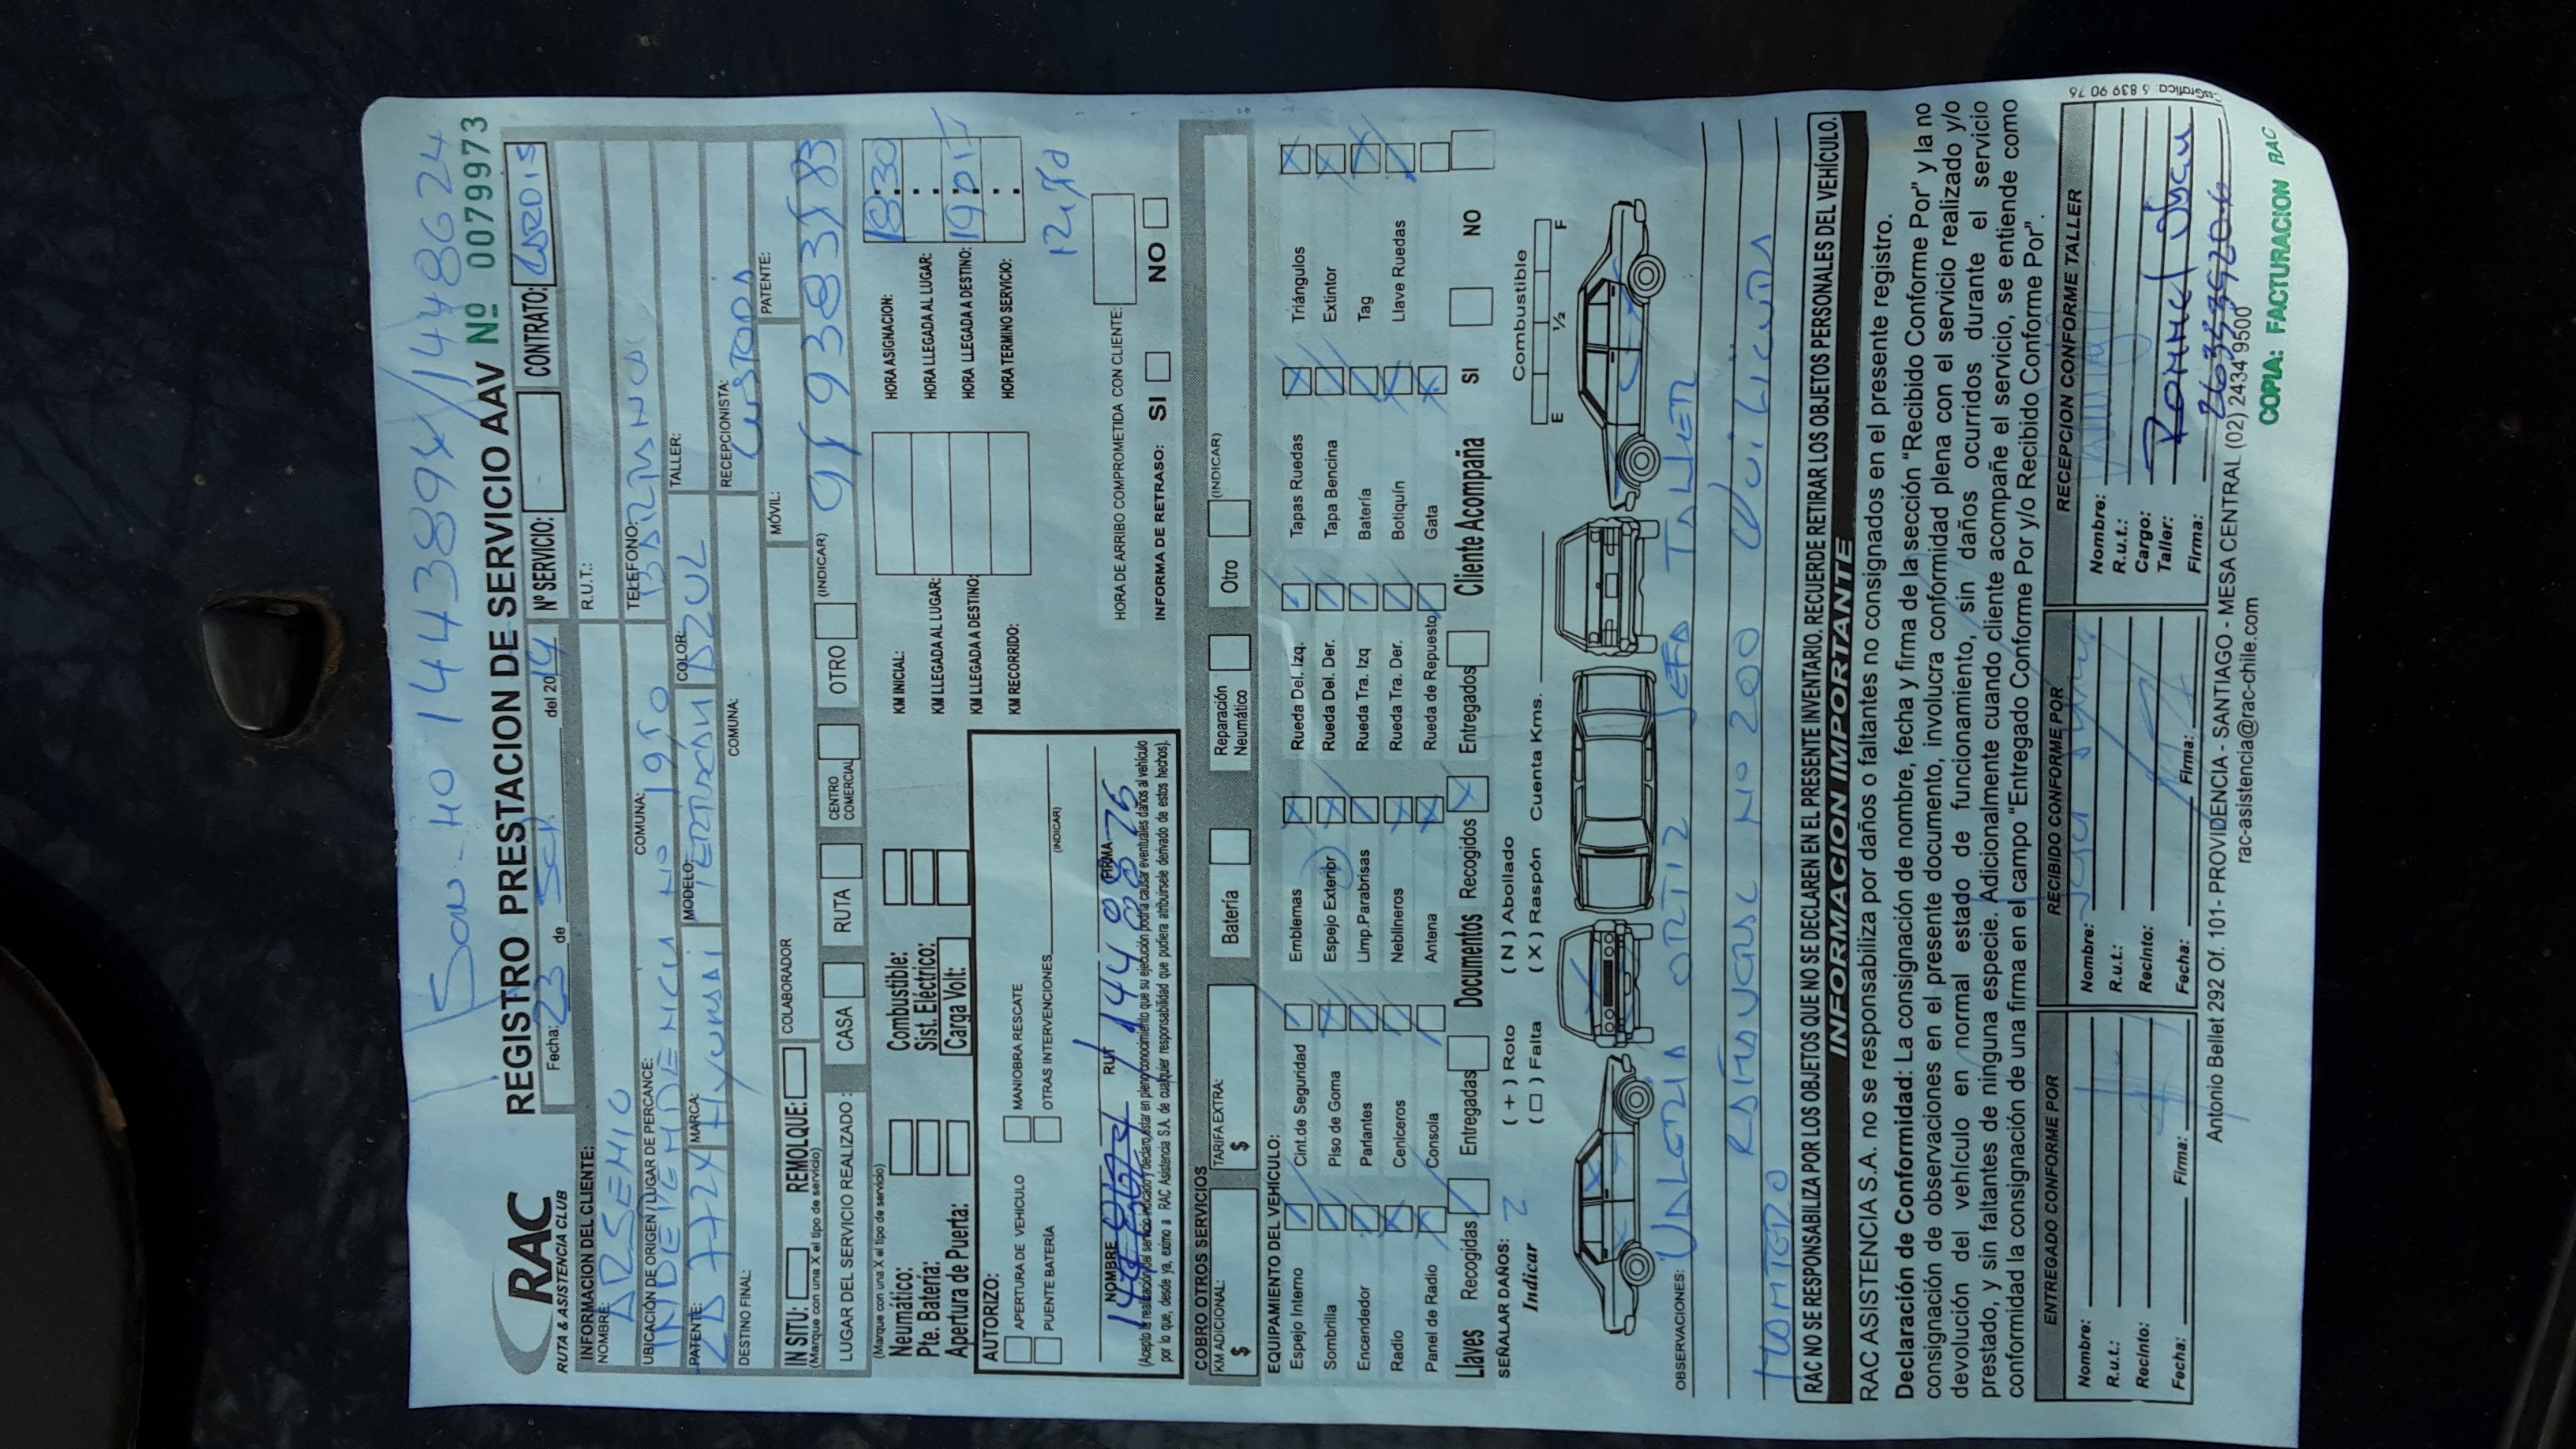 REGISTRO PRESTACION DE SERVICIO AAV Nº 0079973
RAC
RUTA & ASISTENCIA CLUB
Fecha: 23 de del 2019 Nº SERVICIO: CONTRATO:
INFORMACION DEL CLIENTE:
NOMBRE: ARSENIO R.U.T.:
UBICACIÓN DE ORIGEN / LUGAR DE PERCANCE: COMUNA: TELEFONO:
INDEPENDENCIA Nº 1950
PATENTE: MARCA: MODELO: COLOR: TALLER:
Hyundai AZUL
DESTINO FINAL: COMUNA: RECEPCIONISTA:
CUSTODIA
IN SITU: REMOLQUE: COLABORADOR MÓVIL: PATENTE:
(Marque con una X el tipo de servicio)
LUGAR DEL SERVICIO REALIZADO: CASA RUTA CENTRO COMERCIAL OTRO (INDICAR)
(Marque con una X el tipo de servicio)
Neumático: Combustible:
Pte. Batería: Sist. Eléctrico:
Apertura de Puerta: Carga Volt:
KM INICIAL: HORA ASIGNACION: 18:30
KM LLEGADA AL LUGAR: HORA LLEGADA AL LUGAR:
KM LLEGADA A DESTINO: HORA LLEGADA A DESTINO:
KM RECORRIDO: HORA TERMINO SERVICIO:
AUTORIZO:
APERTURA DE VEHICULO MANIOBRA RESCATE
PUENTE BATERÍA OTRAS INTERVENCIONES
(INDICAR)
HORA DE ARRIBO COMPROMETIDA CON CLIENTE:
INFORMA DE RETRASO: SI NO
NOMBRE RUT FIRMA
(Acepto la realización del servicio indicado y declaro estar en pleno conocimiento que su ejecución podría causar eventuales daños al vehículo
por lo que, desde ya, eximo a RAC Asistencia S.A. de cualquier responsabilidad que pudiera atribuírsele derivado de estos hechos).
COBRO OTROS SERVICIOS
KM ADICIONAL: $ TARIFA EXTRA: $ Batería Reparación Neumático Otro (INDICAR)
EQUIPAMIENTO DEL VEHICULO:
Espejo Interno Cint.de Seguridad Emblemas Rueda Del. Izq. Tapas Ruedas Triángulos
Sombrilla Piso de Goma Espejo Exterior Rueda Del. Der. Tapa Bencina Extintor
Encendedor Parlantes Limp.Parabrisas Rueda Tra. Izq Batería Tag
Radio Ceniceros Neblineros Rueda Tra. Der. Botiquín Llave Ruedas
Panel de Radio Consola Antena Rueda de Repuesto Gata
Llaves Recogidas Entregadas Documentos Recogidos Entregados Cliente Acompaña SI NO
SEÑALAR DAÑOS: (+) Roto (N) Abollado
Indicar (□) Falta (X) Raspón Cuenta Kms. Combustible
E ½ F
OBSERVACIONES: VALERIA ORTIZ JEFA TALLER
Nº 200 Quilicura
RAC NO SE RESPONSABILIZA POR LOS OBJETOS QUE NO SE DECLAREN EN EL PRESENTE INVENTARIO. RECUERDE RETIRAR LOS OBJETOS PERSONALES DEL VEHÍCULO.
INFORMACION IMPORTANTE
RAC ASISTENCIA S.A. no se responsabiliza por daños o faltantes no consignados en el presente registro.
Declaración de Conformidad: La consignación de nombre, fecha y firma de la sección "Recibido Conforme Por" y la no
consignación de observaciones en el presente documento, involucra conformidad plena con el servicio realizado y/o
devolución del vehículo en normal estado de funcionamiento, sin daños ocurridos durante el servicio
prestado, y sin faltantes de ninguna especie. Adicionalmente cuando cliente acompañe el servicio, se entiende como
conformidad la consignación de una firma en el campo "Entregado Conforme Por y/o Recibido Conforme Por".
ENTREGADO CONFORME POR RECIBIDO CONFORME POR RECEPCION CONFORME TALLER
Nombre: Nombre: Nombre:
R.u.t.: R.u.t.: R.u.t.:
Recinto: Recinto: Cargo:
Taller:
Fecha: Firma: Fecha: Firma: Firma:
Antonio Bellet 292 Of. 101- PROVIDENCIA - SANTIAGO - MESA CENTRAL (02) 2434 9500
rac-asistencia@rac-chile.com
COPIA: FACTURACION RAC